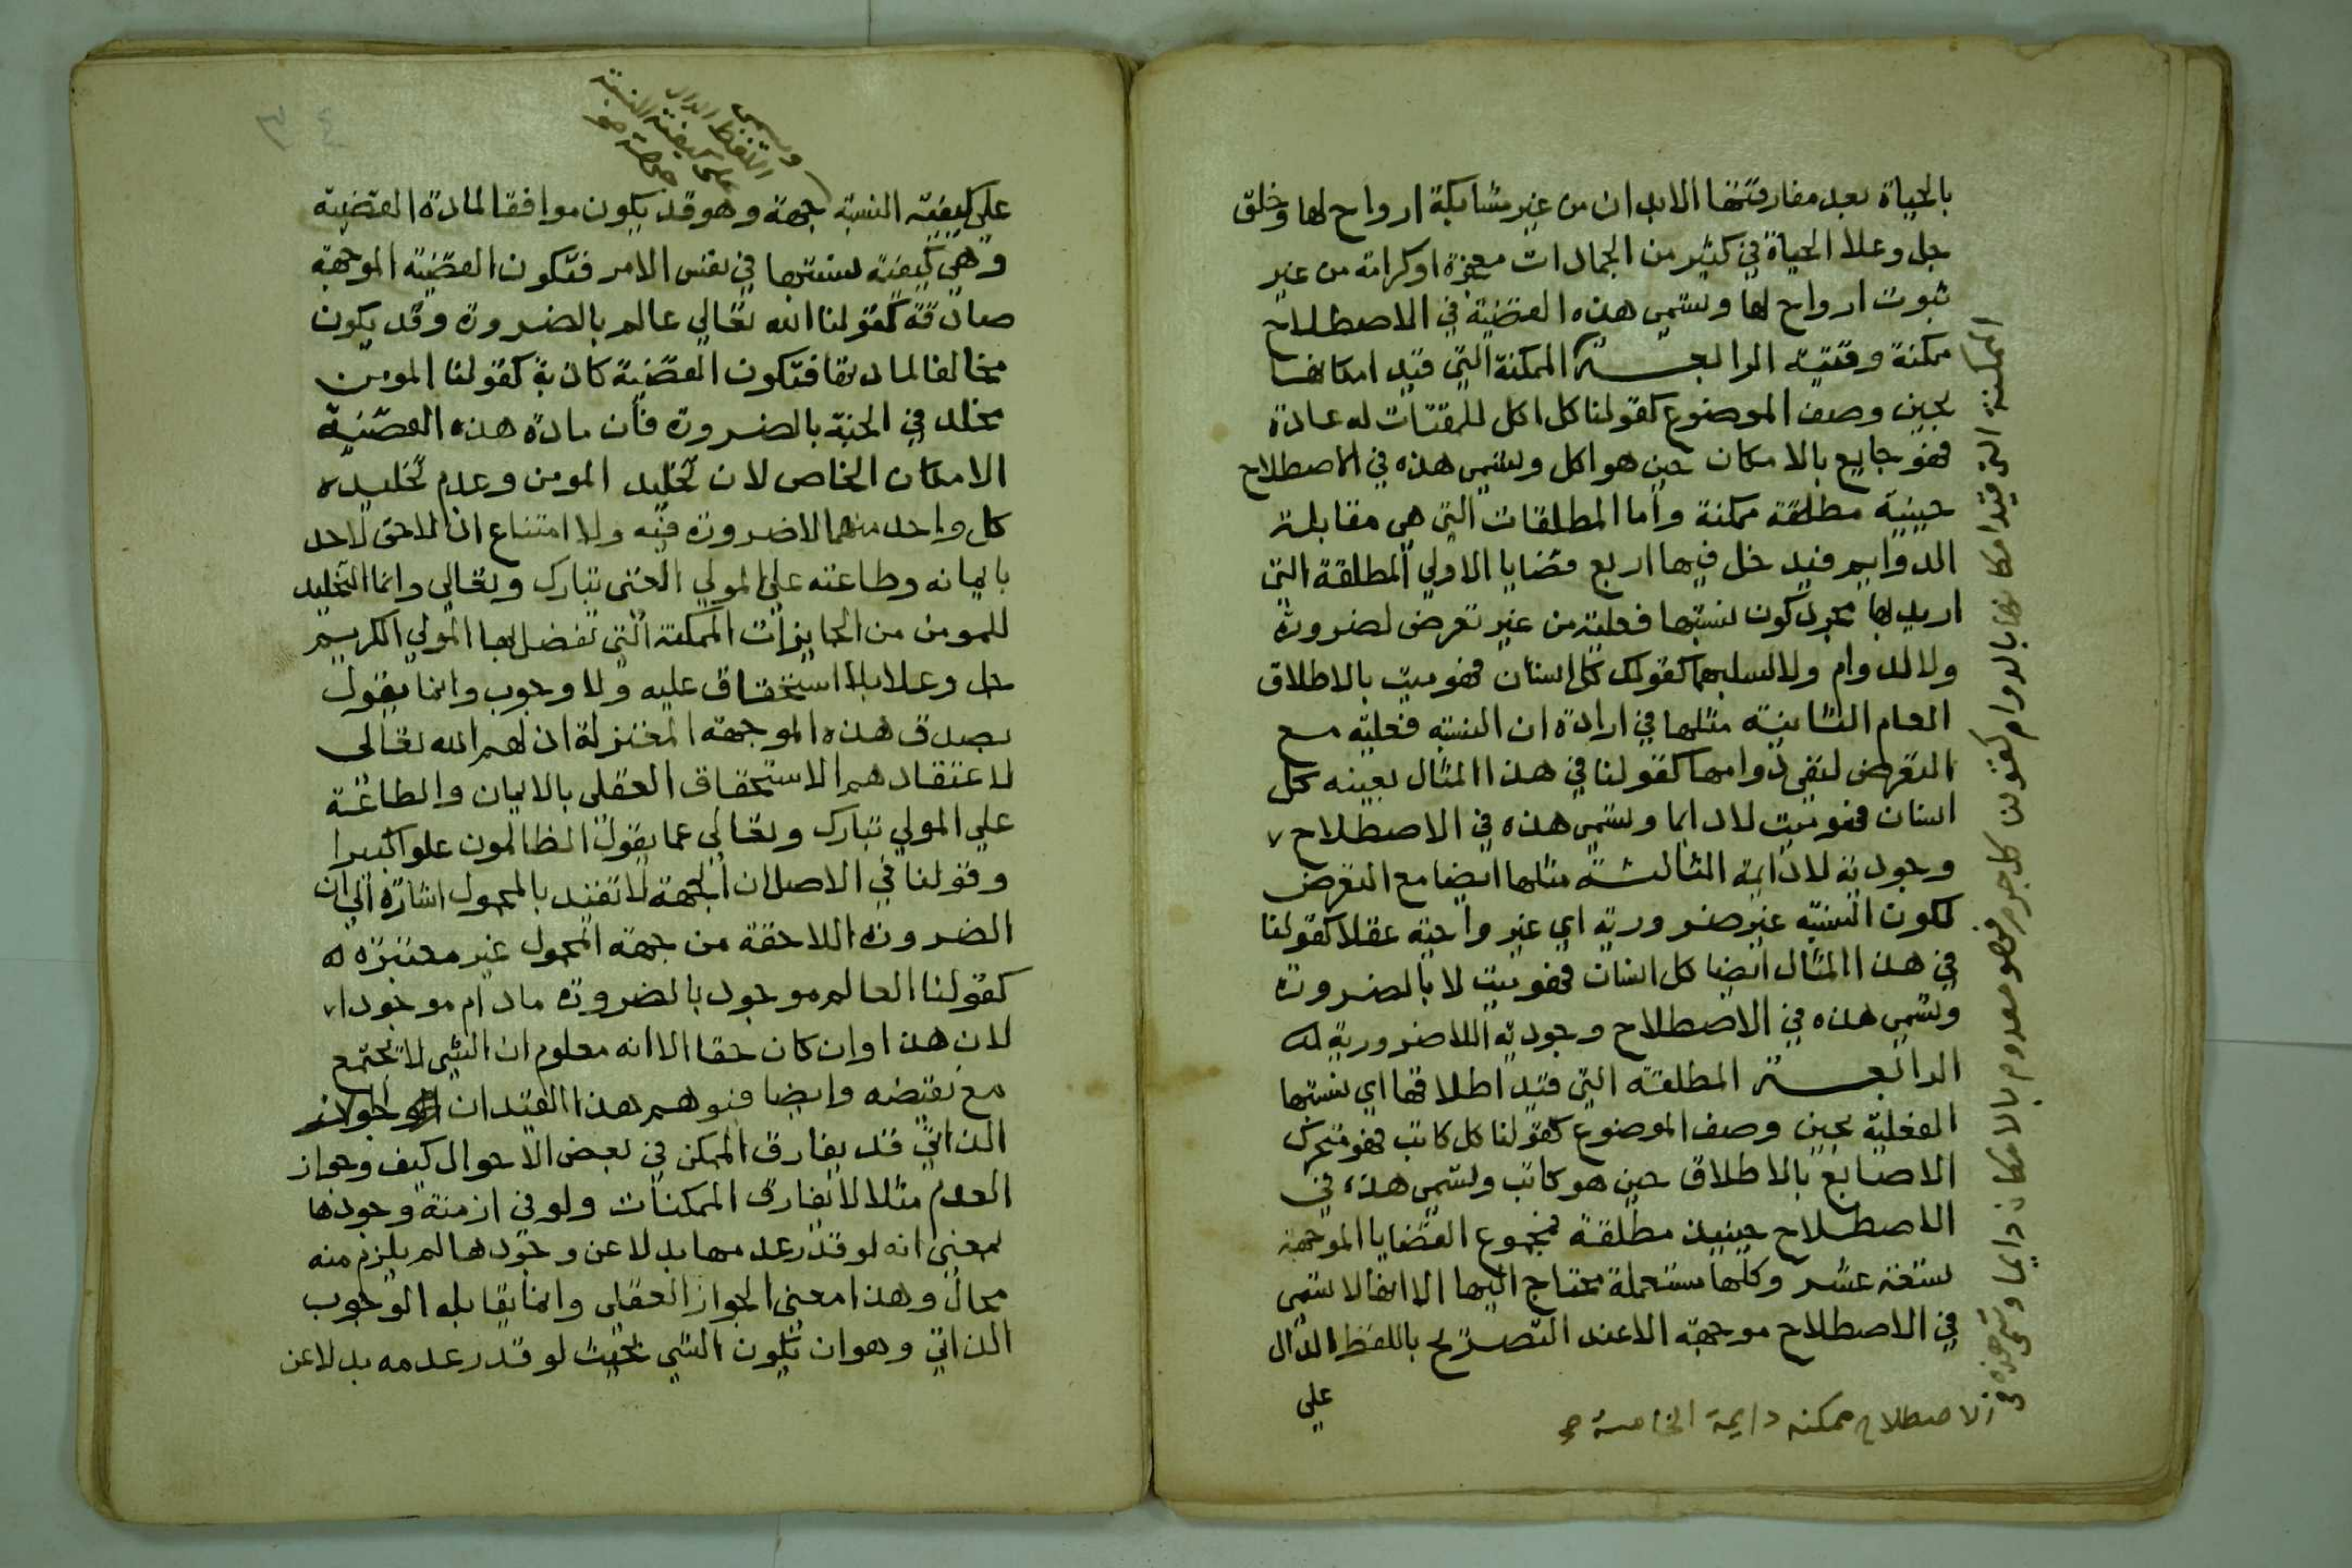 بالحياة بعد مفارقتها الابدان من غير مشابكة ارواح لها وخلق
جل وعلا الحياة في كثير من الجمادات معجزة او كرامة من غير
ثبوت ارواح لها وتسمى هذه القضية في الاصطلاح
ممكنة وقتية الرابعة الممكنة التي قيد امكانها
بحين وصف الموضوع كقولنا كل اكل للمقتات له عادة
فهو جايع بالامكان حين هو اكل وتسمى هذه في الاصطلاح
حينية مطلقة ممكنة واما المطلقات التي هي مقابلة
الدوايم فيدخل فيها اربع قضايا الاولي المطلقة التي
اريد بها مجرد كون نسبتها فعلية من غير تعرض لضرورة
ولا لدوام ولا لسلبهما كقولك كل انسان فهو ميت بالاطلاق
العام الثانية مثلها في ارادة ان النسبة فعلية مع
التعرض لنفي دوامها كقولنا في هذا المثال بعينه كل
انسان فهو ميت لا دايما وتسمى هذه في الاصطلاح
وجودية لا دايمة الثالثة مثلها ايضا مع التعرض
لكون النسبة غير ضرورية اي غير واجبة عقلا كقولنا
في هذا المثال ايضا كل انسان فهو ميت لا بالضرورة
وتسمى هذه في الاصطلاح وجودية اللاضرورية له
الرابعة المطلقة التي قيد اطلاقها اي نسبتها
الفعلية بحين وصف الموضوع كقولنا كل كاتب فهو متحرك
الاصابع بالاطلاق حين هو كاتب وتسمى هذه في
الاصطلاح حينية مطلقة فمجموع القضايا الموجهة
ستة عشر وكلها مستعملة محتاج اليها الا انها لا تسمى
في الاصطلاح موجهة الا عند التصريح باللفظ الدال
علي
الممكنة التي قيد امكانها بالدوام كقولنا كل جرم فهو معدوم بالامكان دايما وتسمى هذه في
الاصطلاح ممكنة دايمة الخامسة
على كيفية النسبة جهة وهو قد يكون موافقا لمادة القضية
وهي كيفية نسبتها في نفس الامر فتكون القضية الموجهة
صادقة كقولنا الله تعالي عالم بالضرورة وقد يكون
مخالفا لمادتها فتكون القضية كاذبة كقولنا المومن
مخلد في الجنة بالضرورة فان مادة هذه القضية
الامكان الخاص لان تخليد المومن وعدم تخليده
كل واحد منهما لا ضرورة فيه ولا امتناع اذ لا حق لاحد
بايمانه وطاعته علي المولي الغني تبارك وتعالي وانما التخليد
للمومن من الجايزات الممكنة التي تفضل بها المولي الكريم
جل وعلا بلا استحقاق عليه ولا وجوب وانما يقول
بصدق هذه الموجهة المعتزلة اذلهم الله تعالى
لاعتقادهم الاستحقاق العقلي بالايمان والطاعة
علي المولي تبارك وتعالي عما يقول الظالمون علوا كبيرا
وقولنا في الاصل ان الجهة لا تقيد بالمحمول اشارة الي ان
الضرورة اللاحقة من جهة المحمول غير معتبرة
كقولنا العالم موجود بالضرورة مادام موجودا
لان هذا وان كان حقا الا انه معلوم ان الشي لا يجتمع
مع نقيضه وايضا فيوهم هذا القيد ان الجواز
الذاتي قد يفارق الممكن في بعض الاحوال كيف وجواز
العدم مثلا لا يفارق الممكنات ولو في ازمنة وجودها
بمعنى انه لو قدر عدمها بدلا عن وجودها لم يلزم منه
محال وهذا معنى الجواز العقلي وانما يقابله الوجوب
الذاتي وهو ان يكون الشي بحيث لو قدر عدمه بدلا عن